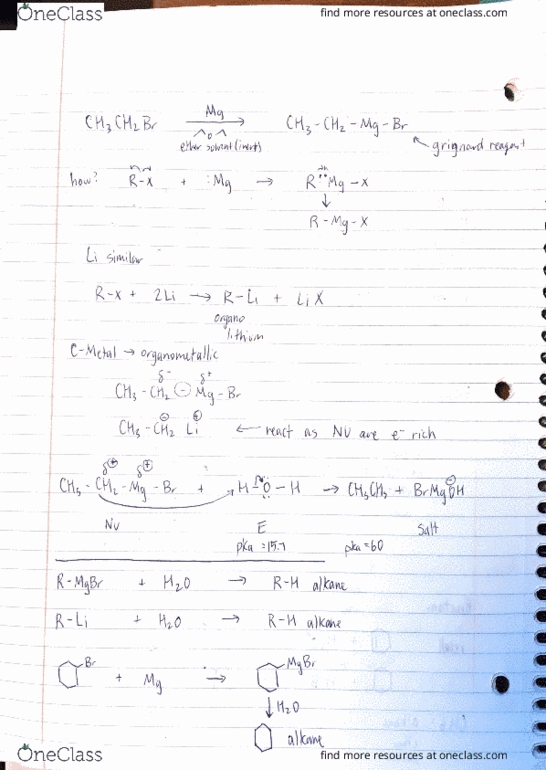 OneClass
find more resources at oneclass.com
CH3CH2Br Mg → CH3-CH2-Mg-Br
ether solvent (inert)
grignard reagent
how? R-X + :Mg → R Mg-X
↓
R-Mg-X
Li similar
R-X + 2Li → R-Li + LiX
organo
lithium
C-Metal → organometallic
δ- δ+
CH3-CH2 Mg-Br
CH3-CH2 Li ← react as NU are e- rich
δ⊕ δ⊕
CH3-CH2-Mg-Br + H-O-H → CH3CH3 + BrMgOH
NU E salt
pka = 15.7 pka = 60
R-MgBr + H2O → R-H alkane
R-Li + H2O → R-H alkane
Br + Mg → MgBr
↓ H2O
alkane
OneClass
find more resources at oneclass.com